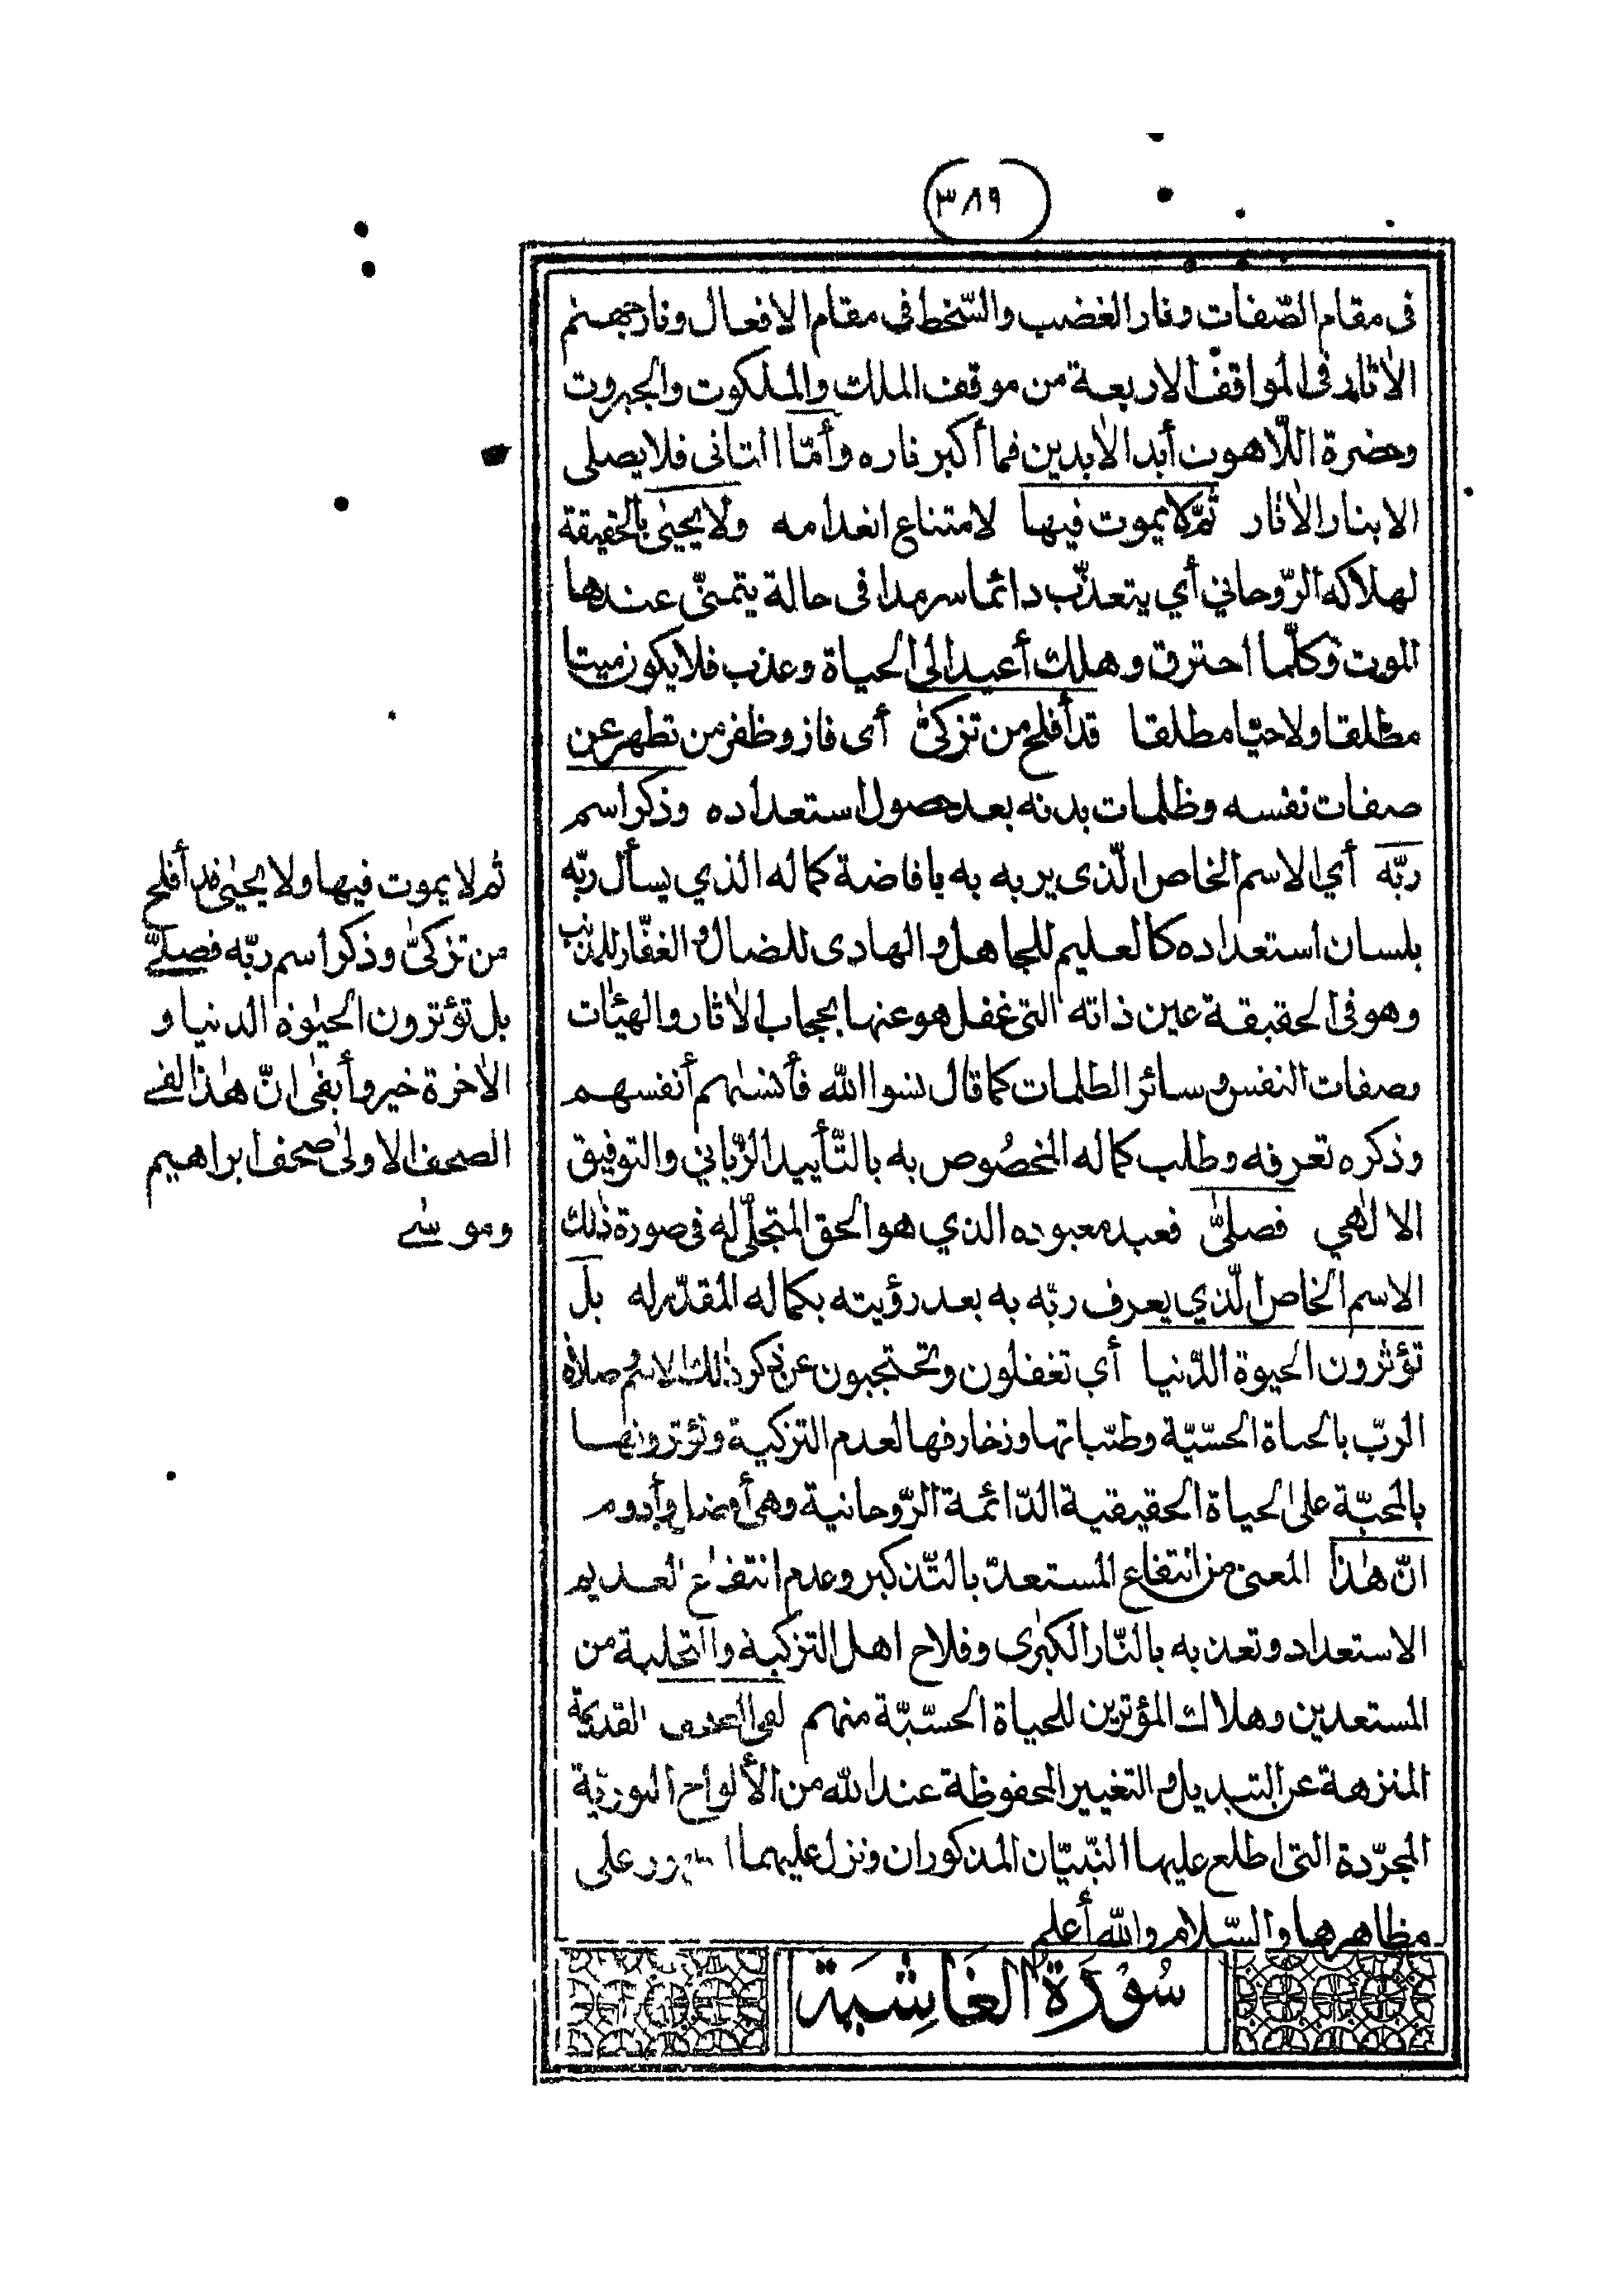 ٣٨٩
فى مقام الصّفات ونار الغضب والسّخط فى مقام الافعال ونار جهنم
الاٰثار فى المواقف الاربعة من موقف الملك والملكوت والجبروت
وحضرة اللّاهوت أبد الاٰبدين فما أكبر ناره وأمّا الثانى فلا يصلى
الا بنار الاٰثار ثمّ لا يموت فيها لامتناع انعدامه ولا يحيىٰ بالحقيقة
لهلاكه الرّوحاني أي يتعذّب دائما سرمدا فى حالة يتمنّى عندها
الموت وكلّما احترق وهلك أعيد الى الحياة وعذب فلا يكون ميتا
مطلقا ولا حيّا مطلقا قد أفلح من تزكىّٰ أى فاز وظفر من تطهر عن
صفات نفسه وظلمات بدنه بعد حصول استعداده وذكر اسم
ربّه أي الاسم الخاص الّذى يربه به بافاضة كماله الذي يسأل ربّه
بلسان استعداده كالعليم للجاهل والهادى للضال والغفّار للمذنب
وهو فى الحقيقة عين ذاته التى غفل هو عنها بحجاب الاٰثار والهيئات
وصفات النفس وسائر الظلمات كما قال نسوا اللّٰه فأنسٰهم أنفسهم
وذكره تعرفه وطلب كماله المخصُوص به بالتّأييد الرّباني والتوفيق
الالٰهي فصلىّٰ فعبد معبوده الذي هو الحق المتجلّى له فى صورة ذٰلك
الاسم الخاص الّذي يعرف ربّه به بعد رؤيته بكماله المقدّر له بل
تؤثرون الحيوة الدّنيا أي تغفلون وتحتجبون عن ذكر ذٰلك الاسم وصلاة
الربّ بالحياة الحسّيّة وطيّباتها وزخارفها لعدم التزكية وتؤثرونها
بالمحبّة على الحياة الحقيقية الدّائمة الرّوحانية وهى أفضل وأدوم
انّ هٰذا المعنى من انتفاع المستعدّ بالتّذكير وعدم انتفاع العديم
الاستعداد وتعذبه بالنّار الكبرٰى وفلاح اهل التزكية والتحلية من
المستعدين وهلاك المؤثرين للحياة الحسّيّة منهم لفى الصحف القديمة
المنزهة عن التبديل والتغيير المحفوظة عند اللّٰه من الألواح النورية
المجرّدة التى اطلع عليها النّبيّان المذكوران ونزل عليهما على
مظاهرها والسّلام واللّٰه أعلم
سُوْرَةُ الغَاشِيَة
ثُم لا يموت فيها ولا يحيىٰ قد أفلح
من تزكىّٰ وذكر اسم ربّه فصلىّٰ
بل تؤثرون الحيٰوة الدنيا و
الاٰخرة خير وأبقىٰ انّ هٰذا لفى
الصحف الاولىٰ صحف ابراهيم
وموسٰى